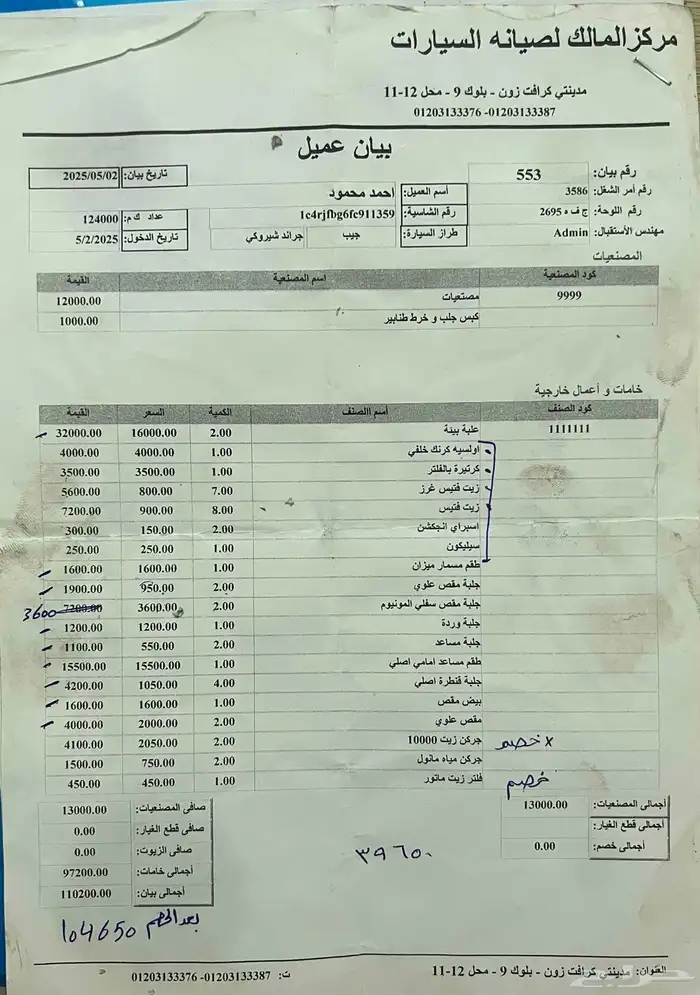 مركز المالك لصيانه السيارات
مدينتي كرافت زون - بلوك 9 - محل 12-11
01203133387 -01203133376
بيان عميل
رقم بيان: 553 تاريخ بيان: 2025/05/02
رقم أمر الشغل: 3586 أسم العميل: احمد محمود
رقم اللوحة: ج ف ه 2695 رقم الشاسية: 1c4rjfbg6fc911359 عداد ك م: 124000
مهندس الأستقبال: Admin طراز السيارة: جيب جراند شيروكي تاريخ الدخول: 5/2/2025
المصنعيات
كود المصنعية اسم المصنعية القيمة
9999 مصنعيات 12000.00
كبس جلب و خرط طنابير 1000.00
خامات و أعمال خارجية
كود الصنف أسم االصنف الكمية السعر القيمة
1111111 علبة بيئة 2.00 16000.00 32000.00
اولسيه كرنك خلفي 1.00 4000.00 4000.00
كرتيرة بالفلتر 1.00 3500.00 3500.00
زيت فتيس غرز 7.00 800.00 5600.00
زيت فتيس 8.00 900.00 7200.00
اسبراي انجكشن 2.00 150.00 300.00
سيليكون 1.00 250.00 250.00
طقم مسمار ميزان 1.00 1600.00 1600.00
جلبة مقص علوي 2.00 950.00 1900.00
جلبة مقص سفلي المونيوم 2.00 3600.00 7200.00 3600
جلبة وردة 1.00 1200.00 1200.00
جلبة مساعد 2.00 550.00 1100.00
طقم مساعد امامي اصلي 1.00 15500.00 15500.00
جلبة قنطرة اصلي 4.00 1050.00 4200.00
بيض مقص 1.00 1600.00 1600.00
مقص علوي 2.00 2000.00 4000.00
x خصم جركن زيت 10000 2.00 2050.00 4100.00
جركن مياه مانول 2.00 750.00 1500.00
خصم فلتر زيت ماتور 1.00 450.00 450.00
أجمالي المصنعيات: 13000.00 صافى المصنعيات: 13000.00
أجمالى قطع الغيار: صافي قطع الغيار: 0.00
أجمالي خصم: 0.00 صافي الزيوت: 0.00
٣٩٦٥٠
أجمالى خامات: 97200.00
أجمالي بيان: 110200.00
بعد الخصم 104650
العنوان: مدينتي كرافت زون - بلوك 9 - محل 12-11 ت: 01203133387 -01203133376